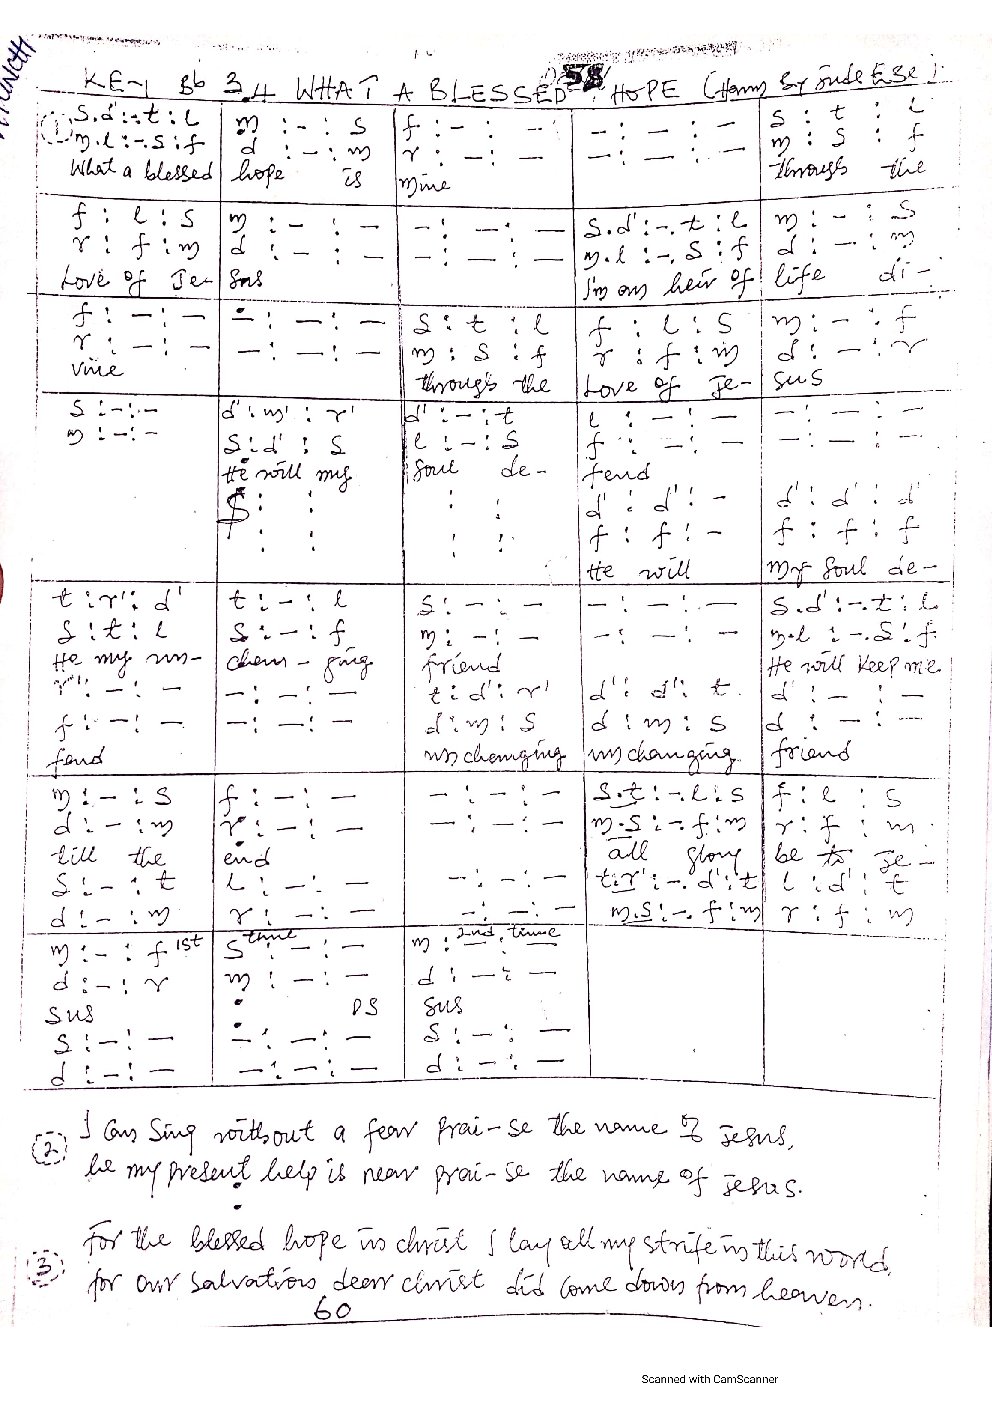 KEY Bb 3.4 WHAT A BLESSED HOPE (Harm By Jude ESE)
58
① s.d':-.t:l | m : - : s | f : - : - | - : - : - | s : t : l
m.l:-.s:f | d : - : m | r : - : - | - : - : - | m : s : f
What a blessed | hope is | mine | | through the
f : l : s | m : - : - | - : - : - | s.d':-.t:l | m : - : s
r : f : m | d : - : - | - : - : - | m.l:-.s:f | d : - : m
Love of Je- | sus | | I'm an heir of | life di-
f : - : - | - : - : - | s : t : l | f : l : s | m : - : f
r : - : - | - : - : - | m : s : f | r : f : m | d : - : r
vine | | through the | Love of Je- | sus
s : - : - | d' : m' : r' | d' : - : t | l : - : - | - : - : -
m : - : - | s : d' : s | l : - : s | f : - : - | - : - : -
He will my | soul de- | fend
$ : : | : : | d' : d' : - | d' : d' : d'
: : | : : | f : f : - | f : f : f
He will | my soul de-
t : r' : d' | t : - : l | s : - : - | - : - : - | s.d':-.t:l
s : t : l | s : - : f | m : - : - | - : - : - | m.l:-.s:f
He my un- | chan-ging | friend | | He will keep me
r' : - : - | - : - : - | t : d' : r' | d' : d' : t | d' : - : -
f : - : - | - : - : - | d : m : s | d : m : s | d : - : -
fend | | unchanging | unchanging | friend
m : - : s | f : - : - | - : - : - | s.t:-.l:s | f : l : s
d : - : m | r : - : - | - : - : - | m.s:-.f:m | r : f : m
till the | end | | all glory | be to Je-
s : - : t | l : - : - | - : - : - | t.r':-.d':t | l : d' : t
d : - : m | r : - : - | - : - : - | m.s:-.f:m | r : f : m
m : - : f 1st | s time : - : - | m : 2nd time
d : - : r | m : - : - | d : - : -
sus | DS | sus
s : - : - | - : - : - | s : - : -
d : - : - | - : - : - | d : - : -
② I can sing without a fear prai-se the name of Jesus,
he my present help is near prai-se the name of Jesus.
③ For the blessed hope in christ I lay all my strife in this world,
for our salvation dear christ did come down from heaven.
60
Scanned with CamScanner